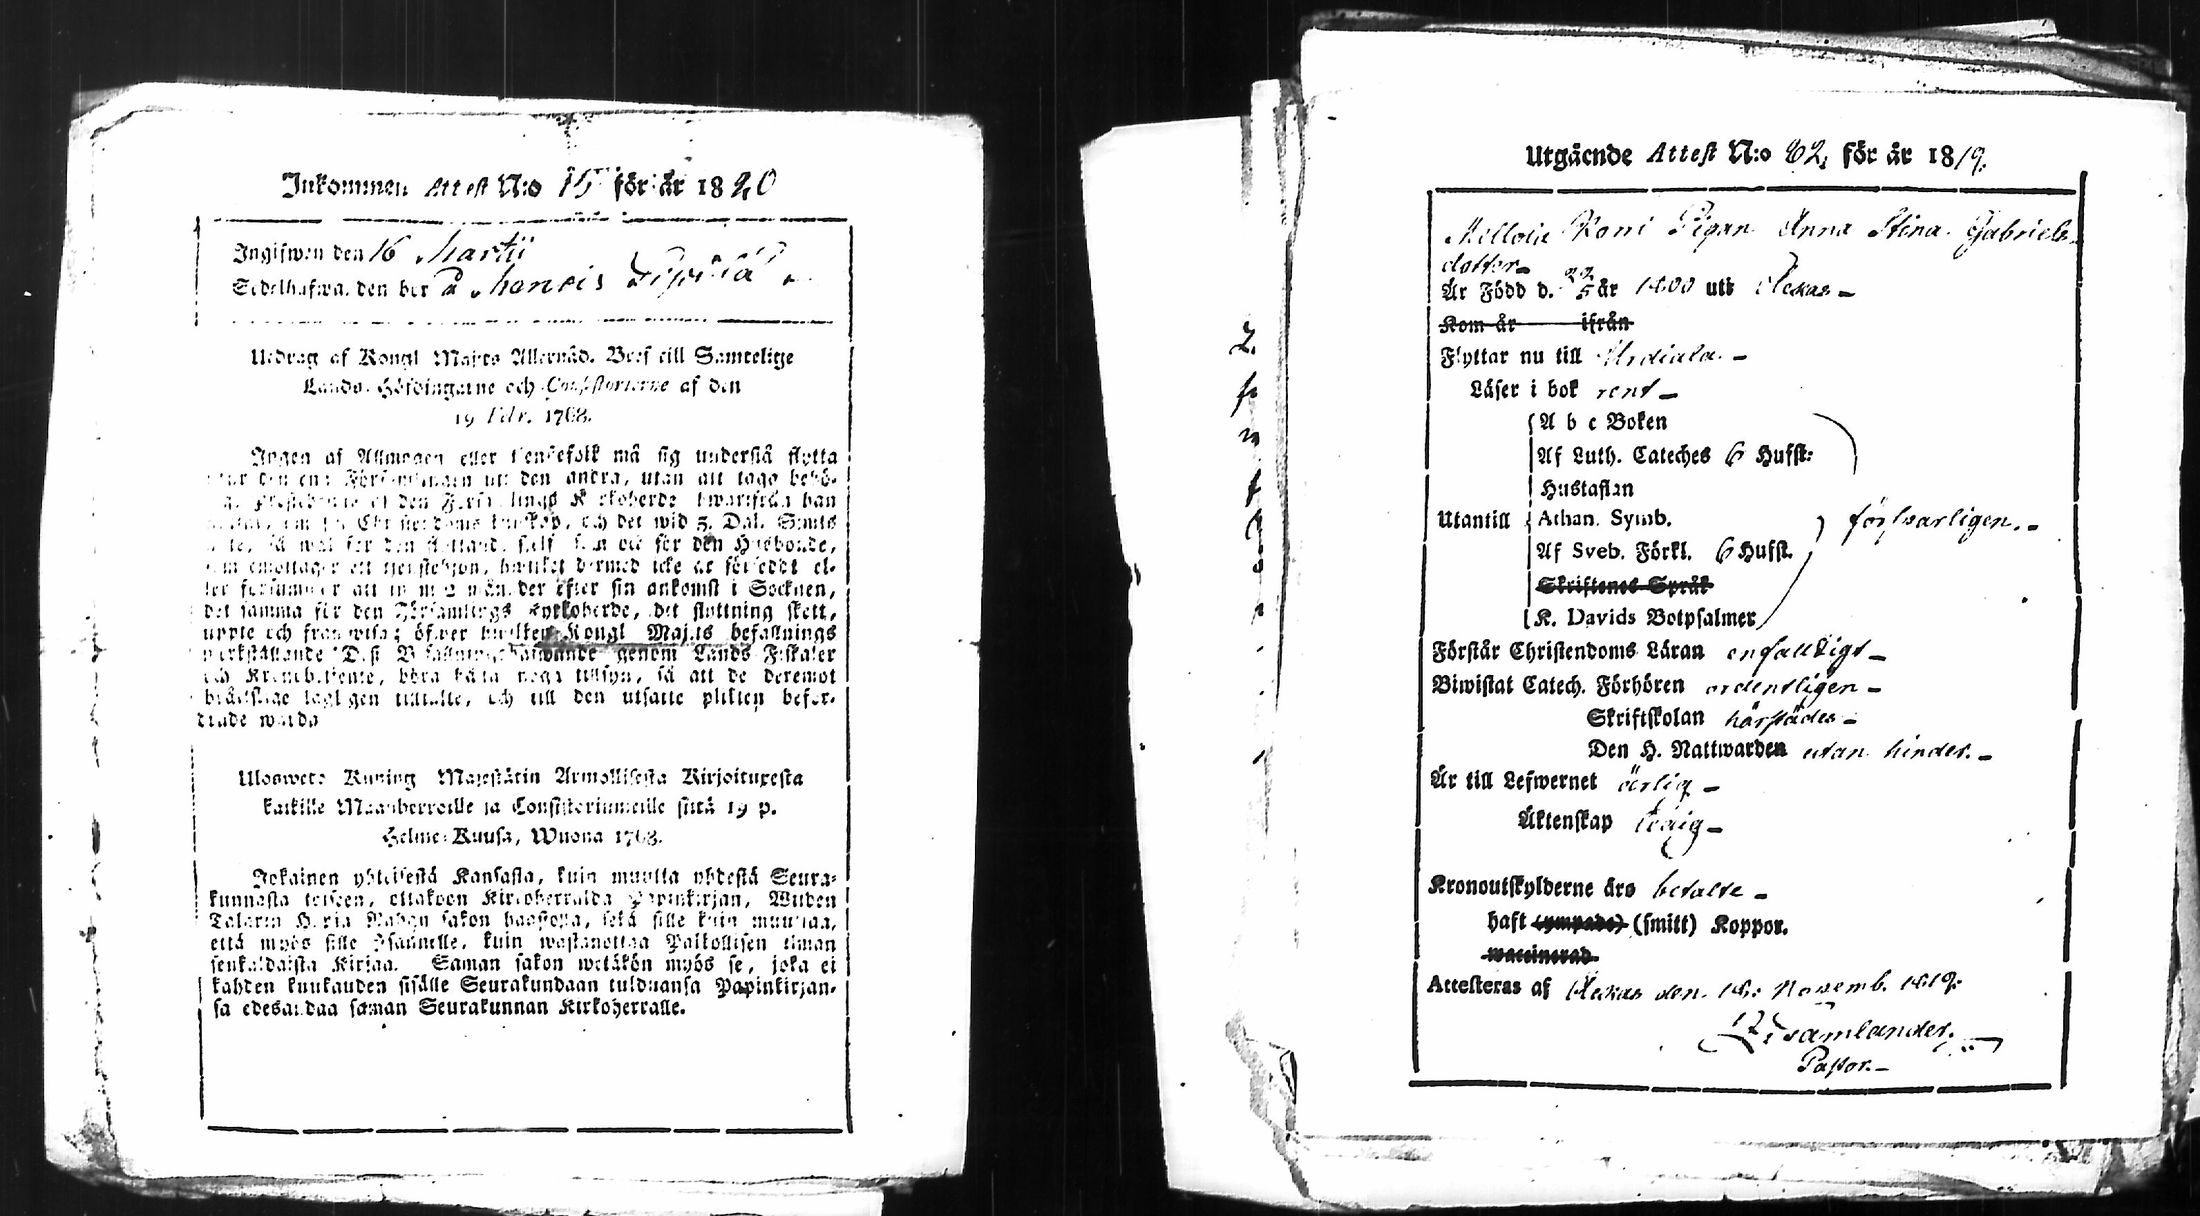 Inkommen Attest N:o 15 för år 1820
Ingifwen den 16 Martii
Sedelhafwa. den ber
Utdrag af Kongl Maj:ts Allernåd. Bref till Samtelige
Lands-Höfdingarne och Consistorierne af den
19 Febr. 1768.
Ingen af Allmogen eller tjenstefolk må sig understå flytta
den ena Församlingen till den andra, utan att taga behö-
den Församlings Kyrkoherde hwarifrån han
Christendoms kunskap, och det wid 5. Dal. S:mts
så wäl för den flyttande sielf som ock för den Husbonde,
som emottager ett tjenstehjon, hwilket dermed icke är försedt el-
ler försummar att inom 2 månader efter sin ankomst i Socknen,
det samma för den Församlings Kyrkoherde, dit flyttning skett,
uppte och framwisa; öfwer hwilken Kongl Maj:ts befallnings
werkställande Des Befallningshafwande genom Lands Fiskaler
och Kronobetjente, böra hålla noga tillsyn, så att de deremot
brådslige lagligen tilltalte, och till den utsatte plikten befor-
drade warda
Uloswetο Kuning Majestätin Armollisesta Kirjoituxesta
kaikille Maanherroille ja Consistoriumeille siitä 19 p.
Helme-Kuusa, Wuona 1768.
Jokainen yhteisestä Kansasta, kuin muutta yhdestä Seura-
kunnasta toiseen, ottakoon Kirkoherralda Papinkirjan, Wiiden
Talarin Hopia Rahan sakon haastolla, sekä sille kuin muuttaa,
että myös sille Isännelle, kuin wastanottaa Palkollisen ilman
senkaldaista Kirjaa. Saman sakon wetäkön myös se, joka ei
kahden kuukauden sisälle Seurakundaan tulduansa Papinkirjan-
sa edesandaa saman Seurakunnan Kirkoherralle.
Utgående Attest N:o 82, för år 1819.
Mellola Koni Pigan Anna Stina Gabriels-
dotter
Är Född d. 22/5 år 1800 uti Akkas
Kom år ifrån
Flyttar nu till Urdiala.
Läser i bok rent
A b c Boken
Af Luth. Cateches 6 Hufst:
Hustaflan
Utantill Athan. Symb. försvarligen.
Af Sveb. Förkl. 6 Hufst.
Skriftenes Språk
K. Davids Botpsalmer
Förstår Christendoms Läran enfalldigt
Biwistat Catech. Förhören ordentligen
Skriftskolan härstädes
Den H. Nattwarden utan hinder.
Är till Lefwernet ärlig
Äktenskap ledig
Kronoutskylderne äro betalte
haft (ympade) (smitt) Koppor.
waccinerad
Attesteras af Akkas den 18: Novemb. 1819.
Samlander.
Pastor.